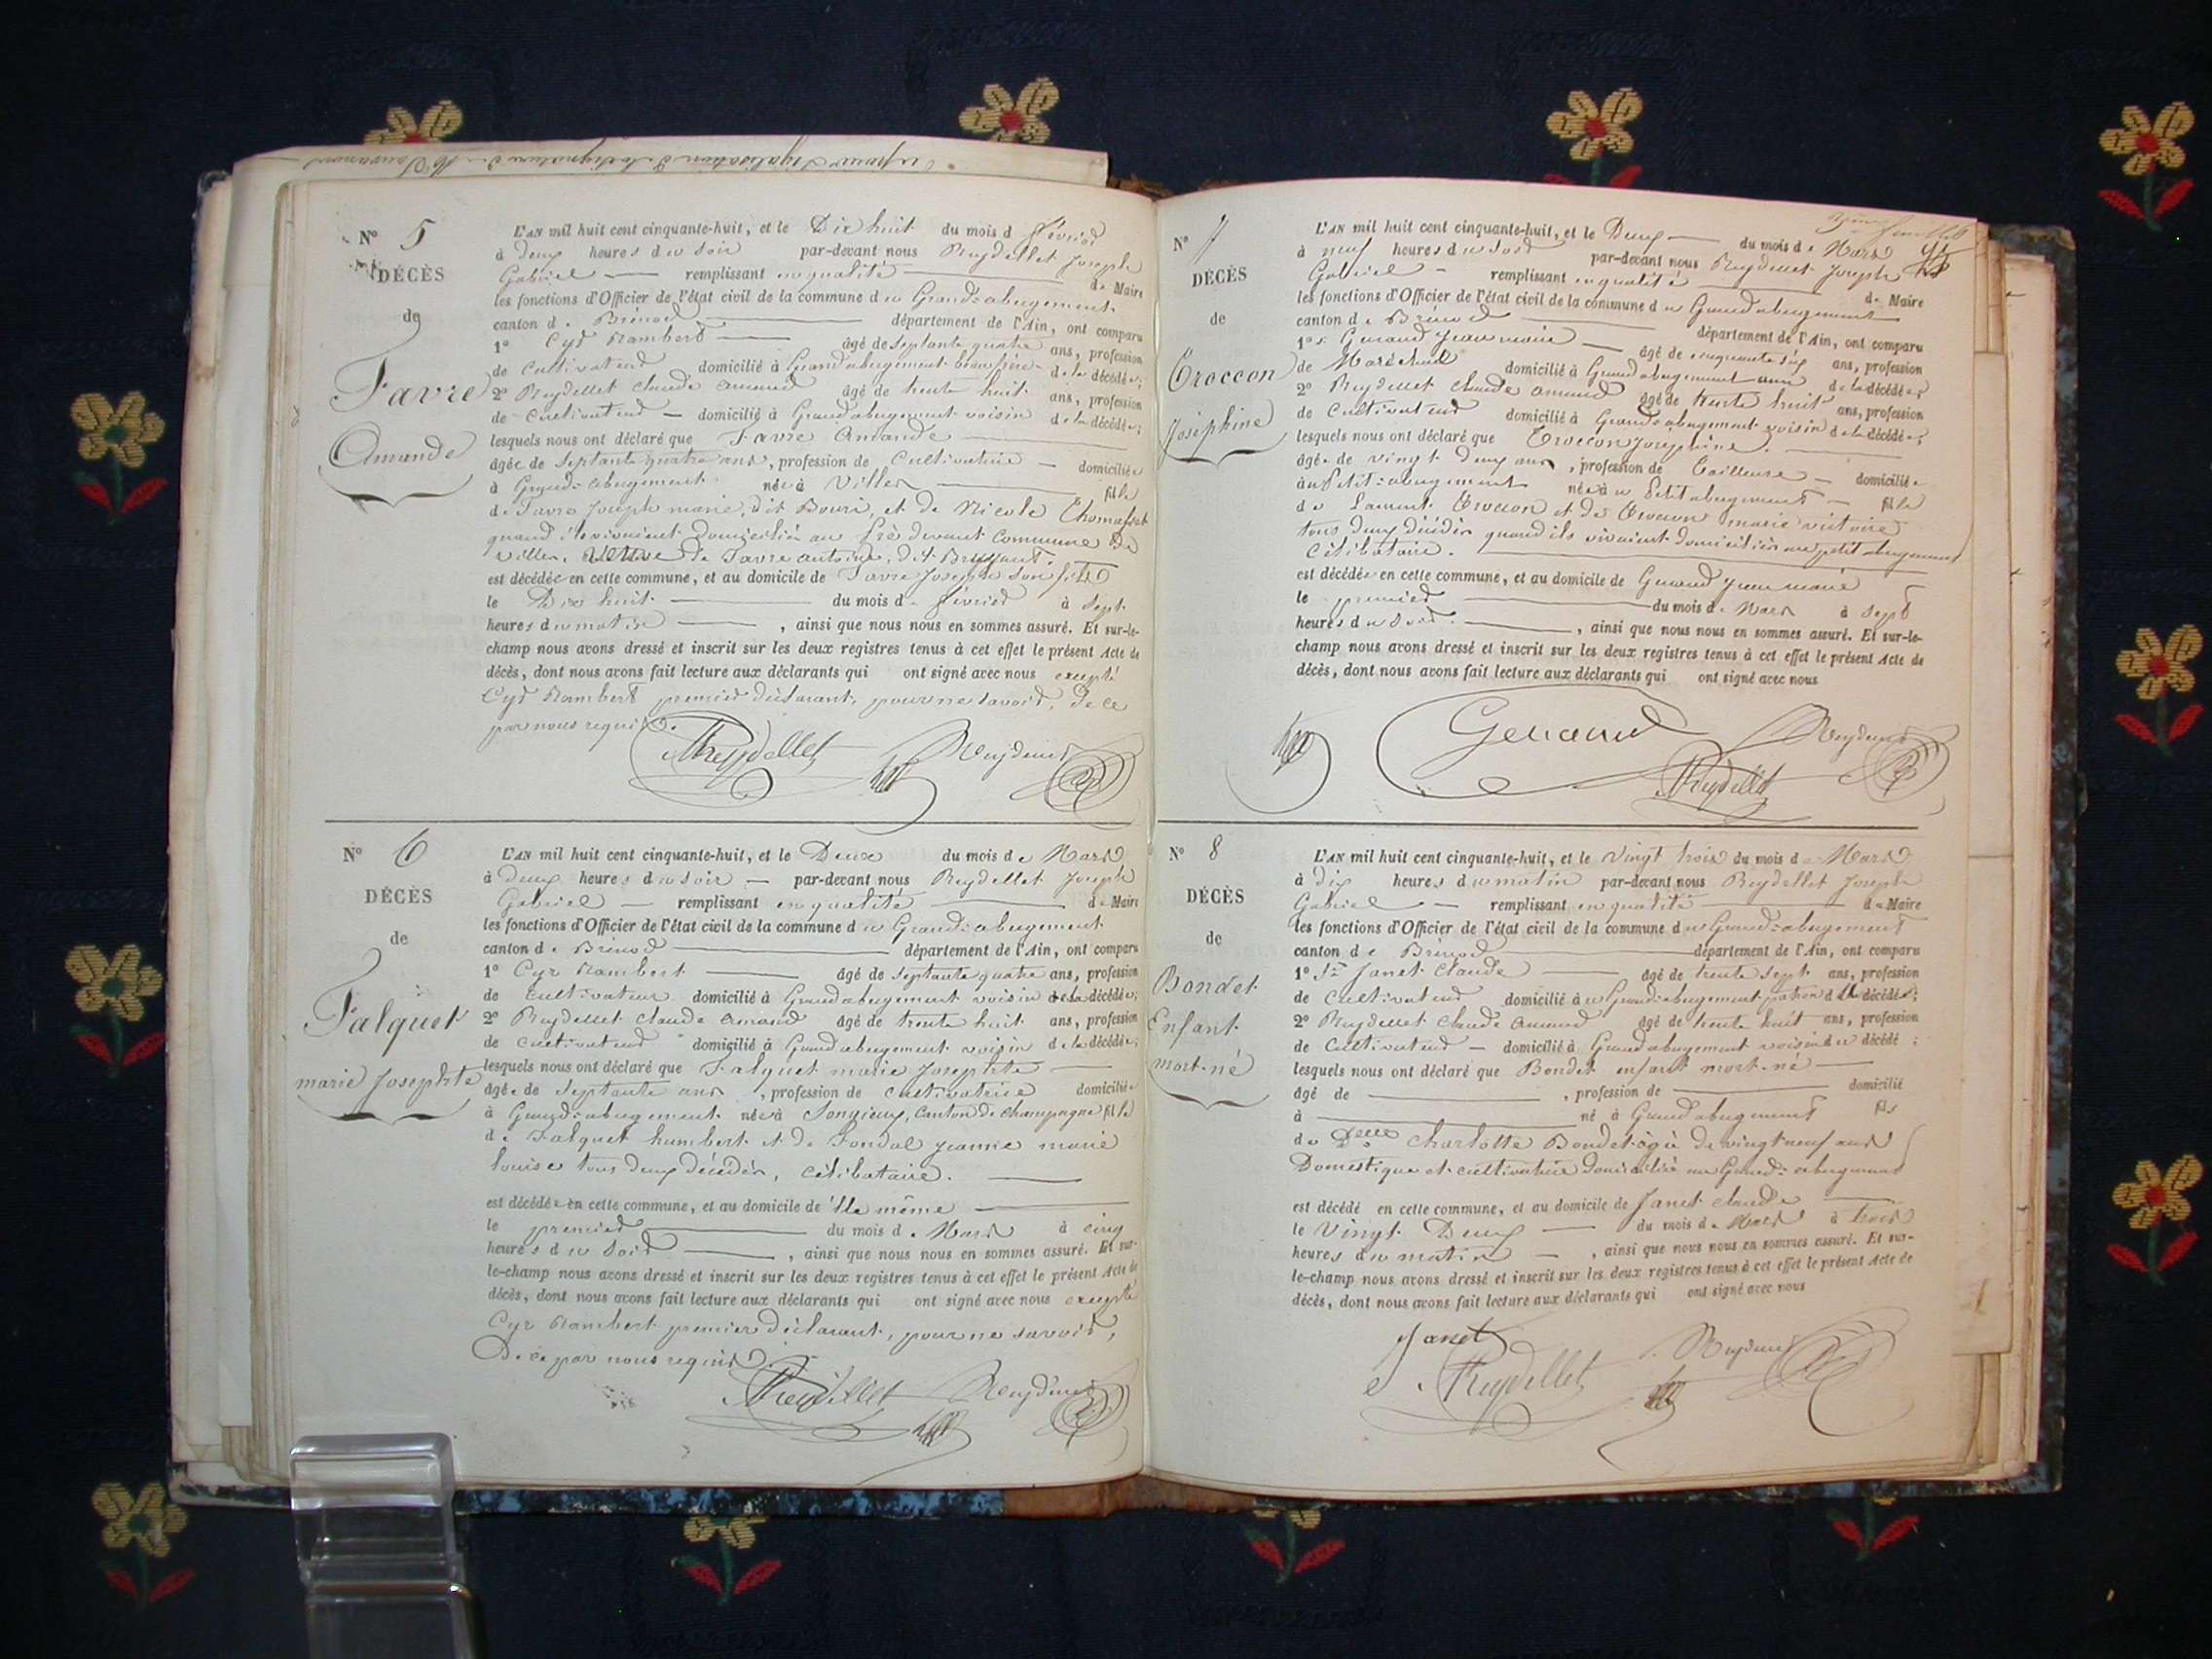 N° 5
DÉCÈS
de
Favre
Amande
L'AN mil huit cent cinquante-huit, et le Dix huit du mois d février
à deux heures du soir par-devant nous Reydellet Joseph
Gabriel remplissant en qualité de Maire
les fonctions d'Officier de l'état civil de la commune du Grand-abergement
canton de Brénod département de l'Ain, ont comparu
1° Cyr Rambert âgé de septante quatre ans, profession
de Cultivateur domicilié à Grand abergement beau frère de la décédée;
2° Reydellet Claude Amand âgé de trente huit ans, profession
de Cultivateur domicilié à Grand abergement voisin de la décédée;
lesquels nous ont déclaré que Favre Amande
âgée de septante quatre ans, profession de Cultivatrice domiciliée
à Grand-abergement née à Villes fille
de Favre Joseph marie, dit Bouri, et de Nicole Thomasset
quand ils vivaient domiciliés au Frè devant Commune de
Villes. veuve de Favre antoine, dit Bruyant.
est décédée en cette commune, et au domicile de Favre Joseph son fils
le Dix huit du mois de février à sept
heures du matin, ainsi que nous nous en sommes assuré. Et sur-le-
champ nous avons dressé et inscrit sur les deux registres tenus à cet effet le présent Acte de
décès, dont nous avons fait lecture aux déclarants qui ont signé avec nous excepté
Cyr Rambert premier déclarant, pour ne savoir, de ce
par nous requis.
Reydellet Reydellet
N° 6
DÉCÈS
de
Falquet
marie Josephte
L'AN mil huit cent cinquante-huit, et le Deux du mois de Mars
à deux heures du soir par-devant nous Reydellet Joseph
Gabriel remplissant en qualité de Maire
les fonctions d'Officier de l'état civil de la commune du Grand-abergement
canton de Brénod département de l'Ain, ont comparu
1° Cyr Rambert âgé de septante quatre ans, profession
de cultivateur domicilié à Grand abergement voisin de la décédée;
2° Reydellet Claude Amand âgé de trente huit ans, profession
de cultivateur domicilié à Grand abergement voisin de la décédée;
lesquels nous ont déclaré que Falquet marie Josephte
âgée de septante ans, profession de cultivatrice domiciliée
à Grand-abergement née à Songieux, Canton de Champagne fille
de Falquet humbert et de Fondal jeanne marie
louise tous deux décédés, célibataire.
est décédée en cette commune, et au domicile de elle même
le premier du mois de Mars à cinq
heures du soir, ainsi que nous nous en sommes assuré. Et sur-
le-champ nous avons dressé et inscrit sur les deux registres tenus à cet effet le présent Acte de
décès, dont nous avons fait lecture aux déclarants qui ont signé avec nous excepté
Cyr Rambert premier déclarant, pour ne savoir,
De ce par nous requis.
Reydellet Reydellet
N° 7
DÉCÈS
de
Troccon
Joséphine
L'AN mil huit cent cinquante-huit, et le Deux du mois de Mars
à neuf heures du soir par-devant nous Reydellet Joseph
Gabriel remplissant en qualité de Maire
les fonctions d'Officier de l'état civil de la commune du Grand abergement
canton de Brénod département de l'Ain, ont comparu
1° Genand Jean marie âgé de cinquante six ans, profession
de Maréchal domicilié à Grand abergement ami de la décédée;
2° Reydellet Claude Amand âgé de trente huit ans, profession
de Cultivateur domicilié à Grand-abergement voisin de la décédée;
lesquels nous ont déclaré que Troccon Josephine.
âgée de vingt deux ans, profession de Tailleuse domiciliée
au Petit-abergement née au Petit abergement fille
de Laurent Troccon et de Troccon marie victoire
tous deux décédés quand ils vivaient domiciliés au petit abergement
Célibataire.
est décédée en cette commune, et au domicile de Genand Jean marie
le premier du mois de Mars à sept
heures du soir, ainsi que nous nous en sommes assuré. Et sur-le-
champ nous avons dressé et inscrit sur les deux registres tenus à cet effet le présent Acte de
décès, dont nous avons fait lecture aux déclarants qui ont signé avec nous
Genand Reydellet
Reydellet
N° 8
DÉCÈS
de
Bondet
Enfant
mort-né
L'AN mil huit cent cinquante-huit, et le vingt trois du mois de Mars
à dix heures du matin par-devant nous Reydellet Joseph
Gabriel remplissant en qualité de Maire
les fonctions d'Officier de l'état civil de la commune du Grand-abergement
canton de Brénod département de l'Ain, ont comparu
1° Sr Janet Claude âgé de trente sept ans, profession
de Cultivateur domicilié à Grand-abergement patron d décédé;
2° Reydellet Claude Amand âgé de trente huit ans, profession
de Cultivateur domicilié à Grand abergement voisin du décédé;
lesquels nous ont déclaré que Bondet enfant mort-né
âgé de, profession de domicilié
à né à Grand abergement fils
de Delle Charlotte Bondet âgée de vingt neuf ans
Domestique et cultivatrice domiciliée au Grand-abergement
est décédé en cette commune, et au domicile de Janet Claude
le Vingt Deux du mois de Mars à trois
heures du matin, ainsi que nous nous en sommes assuré. Et sur-
le-champ nous avons dressé et inscrit sur les deux registres tenus à cet effet le présent Acte de
décès, dont nous avons fait lecture aux déclarants qui ont signé avec nous
Janet Reydellet
Reydellet